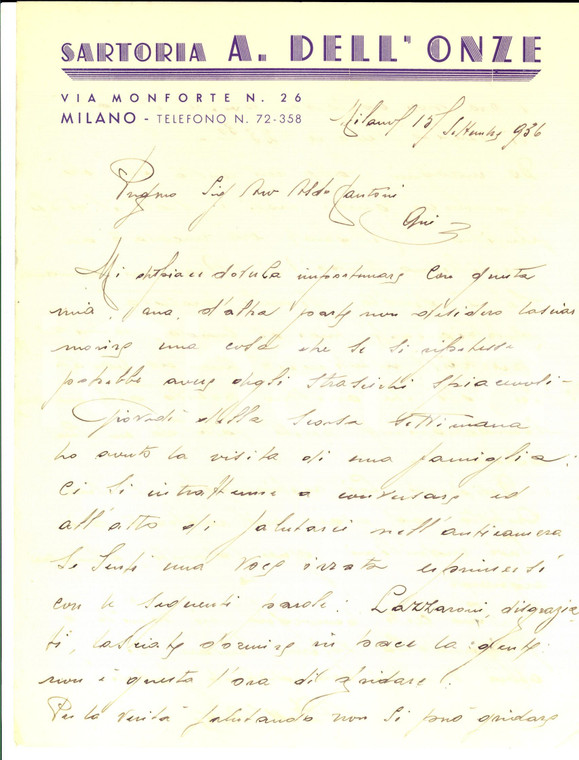 SARTORIA A. DELL'ONZE
VIA MONFORTE N. 26
MILANO - TELEFONO N. 72-358
Milano 15 Settembre 936
Pregmo Sig Avv Aldo Zantoni
Qui
Mi spiace doverla importunare con questa
mia, ma, d'altra parte non desidero lasciar
morire una cosa che se si ripetesse
potrebbe avere degli strascichi spiacevoli -
Giovedì della scorsa settimana
ho avuto la visita di una famiglia:
ci si intrattenne a conversare ed
all'atto di salutarci nell'anticamera
si sentì una voce irata esprimersi
con le seguenti parole: Lazzaroni, disgrazia
ti, lasciate dormire in pace la gente
non è questa l'ora di gridare!
Per la verità salutando non si può gridare